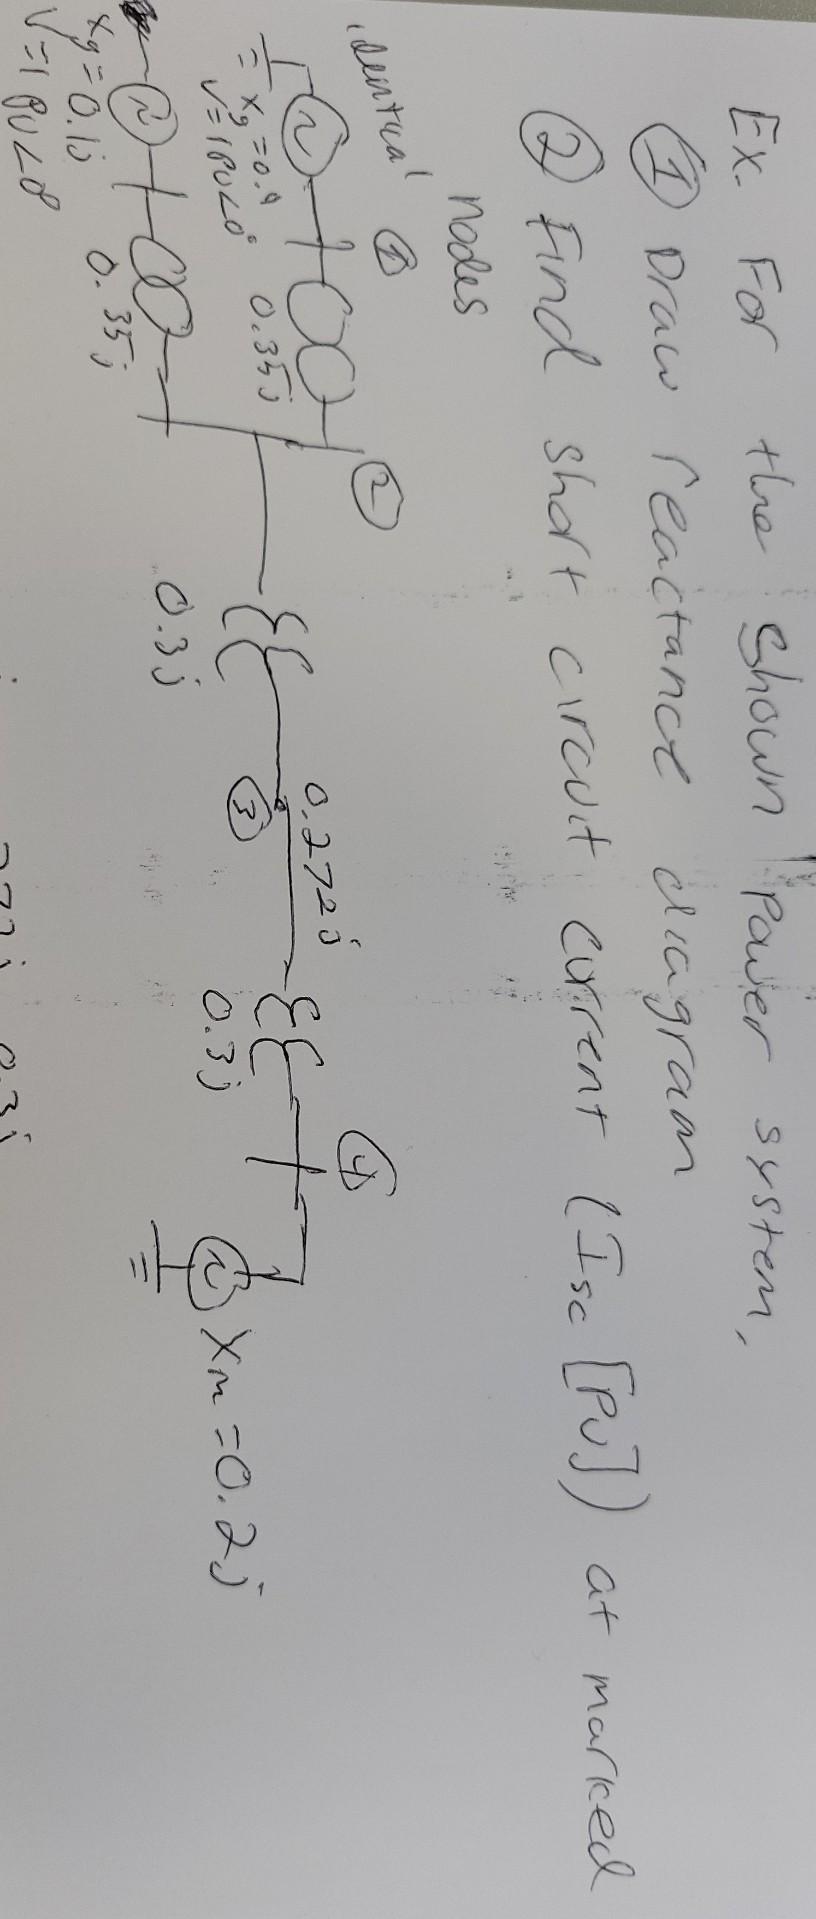 Ex. For the shown power system,
① Draw reactance diagram
② Find short circuit current (Isc [PU]) at marked
nodes
identical
①
②
0.35j
Xg = 0.1
V = 1 PU<0°
0.272j
③
0.3j
④
0.3j
Xm = 0.2j
0.35j
Xg = 0.1j
V = 1 PU<0
0.3j